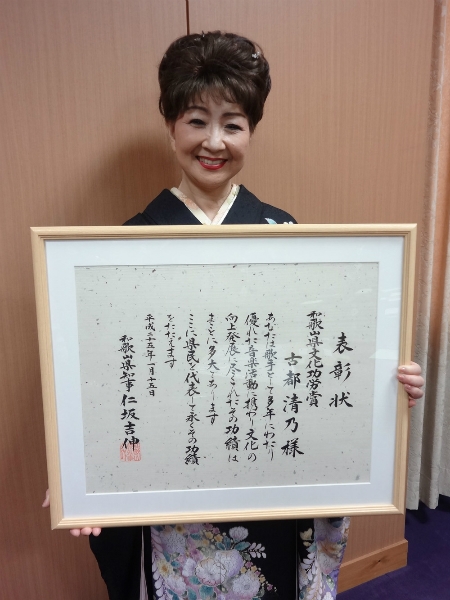 表彰状
和歌山県文化功労賞
古都清乃様
あなたは歌手として多年にわたり
優れた音楽活動に携わり文化の
向上発展に尽くされたその功績は
まことに多大であります
ここに県民を代表して永くその功績
をたたえます
平成二十五年一月十五日
和歌山県知事仁坂吉伸